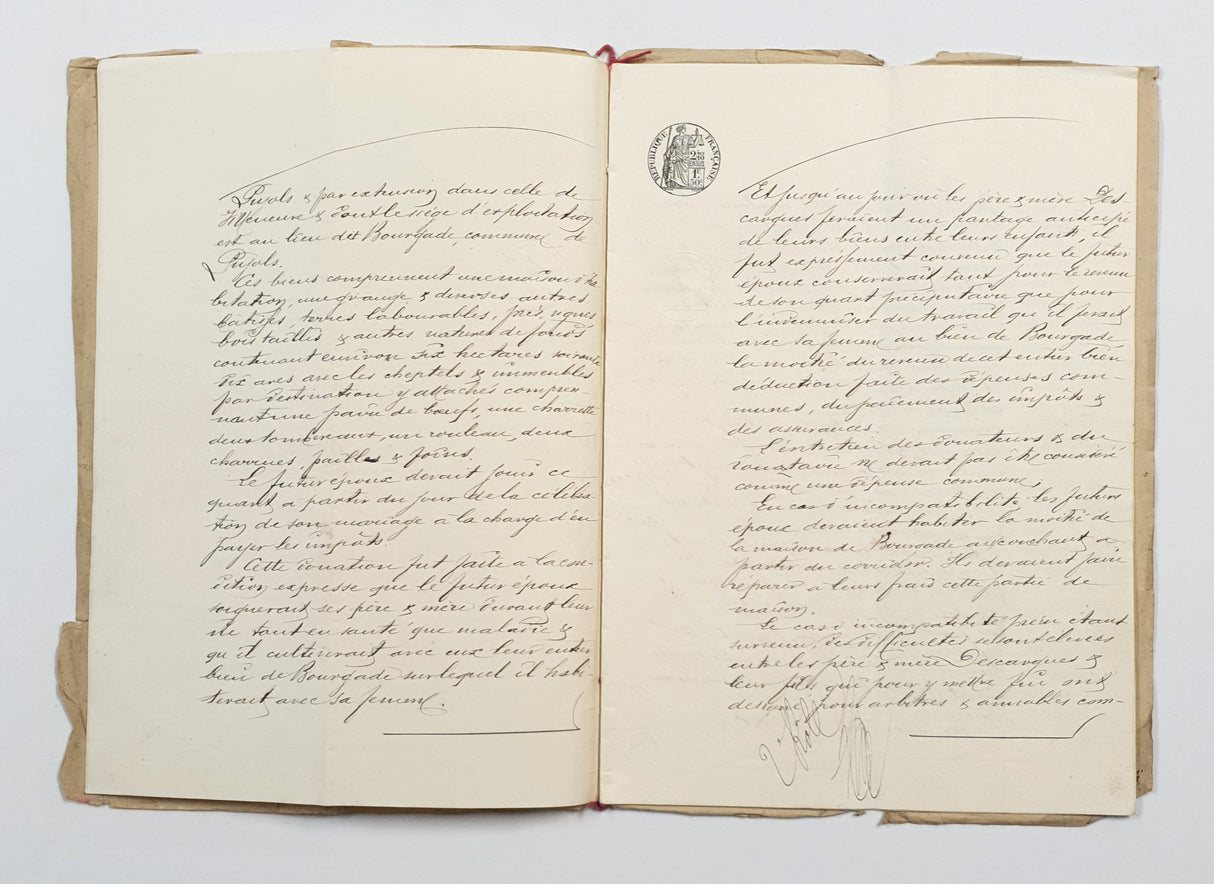 Pujols & par extension dans celle de
Villeneuve & dont le siège d'exploitation
est au lieu dit Bourgade, commune de
Pujols.
Ces biens comprennent une maison d'ha
bitation, une grange & diverses autres
bâtisses, terres labourables, prés, vignes
bois taillis & autres natures de fonds
contenant environ dix hectares soixante
dix ares avec les cheptels & immeubles
par destination y attachés compre-
nant une paire de bœufs, une charrette
deux tombereaux, un rouleau, deux
charrues, pailles & foins.
Le futur époux devait jouir de ce
quart à partir du jour de la célébra-
tion de son mariage à la charge d'en
payer les impôts.
Cette donation fut faite à la con-
dition expresse que le futur époux
soignerait ses père & mère durant leur
vie tant en santé que maladie &
qu'il cultiverait avec eux leur entier
bien de Bourgade sur lequel il habi-
terait avec sa femme.
RÉPUBLIQUE FRANÇAISE
2/10 EN SUS
1F 50C
Et jusqu'au jour où les père & mère Des
carques feraient un partage anticipé
de leurs biens entre leurs enfants, il
fut expressément convenu que le futur
époux conserverait tant pour le revenu
de son quart préciputaire que pour
l'indemniser du travail qu'il ferait
avec sa femme au bien de Bourgade,
la moitié du revenu de cet entier bien
déduction faite des dépenses com-
munes, du paiement des impôts &
des assurances.
L'entretien des donateurs & du
donataire ne devait pas être considéré
comme une dépense commune;
En cas d'incompatibilité les futurs
époux devraient habiter la moitié de
la maison de Bourgade au couchant à
partir du corridor. Ils devraient faire
réparer à leurs frais cette partie de
maison.
Le cas d'incompatibilité prévu étant
survenu, des difficultés se sont élevées
entre les père & mère Descarques &
leur fils qui pour y mettre fin ont
désigné pour arbitres & amiables com-